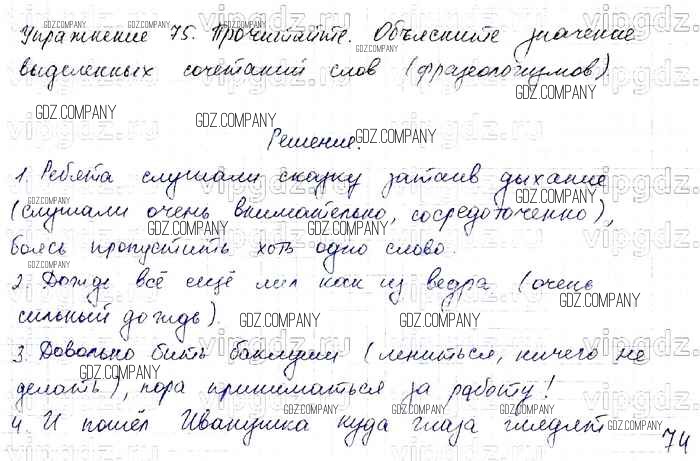 Упражнение 75. Прочитайте. Объясните значение
выделенных сочетаний слов (фразеологизмов).
Решение.
1. Ребята слушали сказку затаив дыхание
(слушали очень внимательно, сосредоточенно),
боясь пропустить хоть одно слово.
2. Дождь всё ещё лил как из ведра (очень
сильный дождь).
3. Довольно бить баклуши (лениться, ничего не
делать), пора приниматься за работу!
4. И пошёл Иванушка куда глаза глядят
74